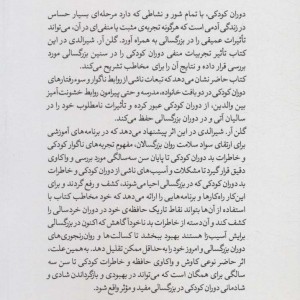 دوران کودکی، با تمام شور و نشاطی که دارد مرحله‌ای بسیار حساس
در زندگی آدمی است که هرگونه تجربه‌ی مثبت یا منفی‌ای در آن، می‌تواند
تأثیرات عمیقی را در بزرگسالی به همراه آورد. گلن آر. شیرالدی در این
کتاب تأثیر تجربیات منفی دوران کودکی را در سنین بزرگسالی مورد
بررسی قرار داده و نتایج آن را برای مخاطب تشریح می‌کند.
کتاب حاضر نشان می‌دهد که تبعات ناشی از روابط ناگوار و سوءرفتارهای
دوران کودکی در دو بافت خانواده، مدرسه و حتی پیرامون روابط خشونت‌آمیز
بین والدین، از دوران کودکی عبور کرده و تأثیرات نامطلوب خود را در
سالیان آتی و در دوران بزرگسالی حفظ می‌کند.
گلن آر. شیرالدی در این اثر پیشنهاد می‌دهد که در برنامه‌های آموزشی
برای ارتقای سواد سلامت روان بزرگسالان، مفهوم تجربه‌های ناگوار کودکی
و خاطرات بد دوران کودکی تا پایان سن سه‌سالگی مورد بررسی و واکاوی
دقیق قرار گیرد تا مشکلات و آسیب‌های ناشی از دوران کودکی و خاطرات
بد دوران کودکی که در بزرگسالی احیا می‌شوند، کشف و رفع گردند و برای
این کار راهکارها و برنامه‌هایی را ارائه می‌دهد که خود مخاطب کتاب با
استفاده از آن‌ها بتواند نقاط تاریک حافظه‌ی خود در دوران خردسالی را
کشف کند و آن دسته از خاطرات بد ناخودآگاهش که اکنون در بزرگسالی
برایش آسیب‌زا هستند بهبود ببخشد تا کسالت‌ها و روان‌رنجوری‌های
دوران بزرگسالی و امروز خود را به حداقل ممکن تقلیل دهد. به‌همین‌علت،
اثر حاضر نوعی کاوش و واکاوی حافظه و خاطرات کودکی تا سن سه
سالگی برای همگان است که می‌تواند در بهبودی و بازگرداندن شادی و
شادمانی دوران کودکی در بزرگسالی مفید و مؤثر واقع شود.